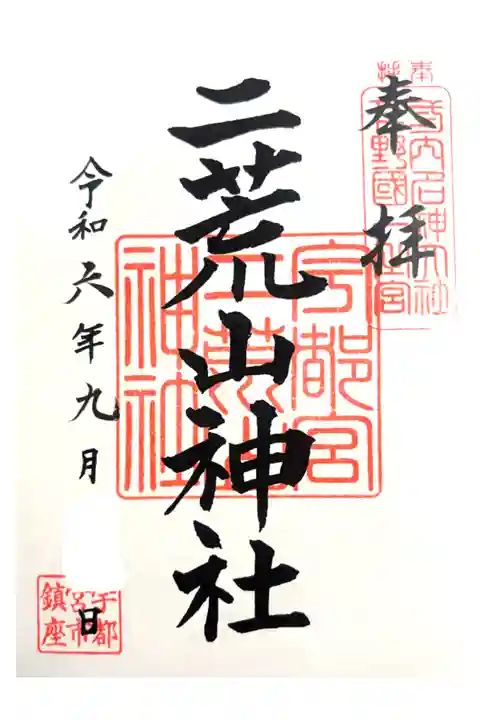 奉拝
式内名神大社
下野國一之宮
二荒山神社
宇都宮
二荒山
神社
令和六年九月
日
宇都
宮市
鎮座